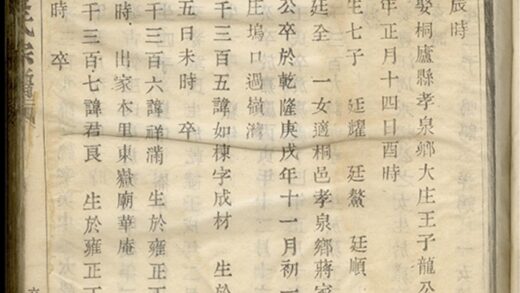 辰時
娶桐廬縣孝泉鄉大庄王子龍公
年正月十四日酉時
生七子 廷耀 廷鰲 廷順
廷全 一女適桐邑孝泉鄉蔣家
公卒於乾隆庚戌年十一月初一
庄塢口過嶺灣
千三百五諱如棟字成材 生於
五日未時 卒
千三百六諱祥滿 生於雍正
時 出家本里東嶽廟華庵
千三百七諱君良 生於雍正
時 卒
氏宗譜